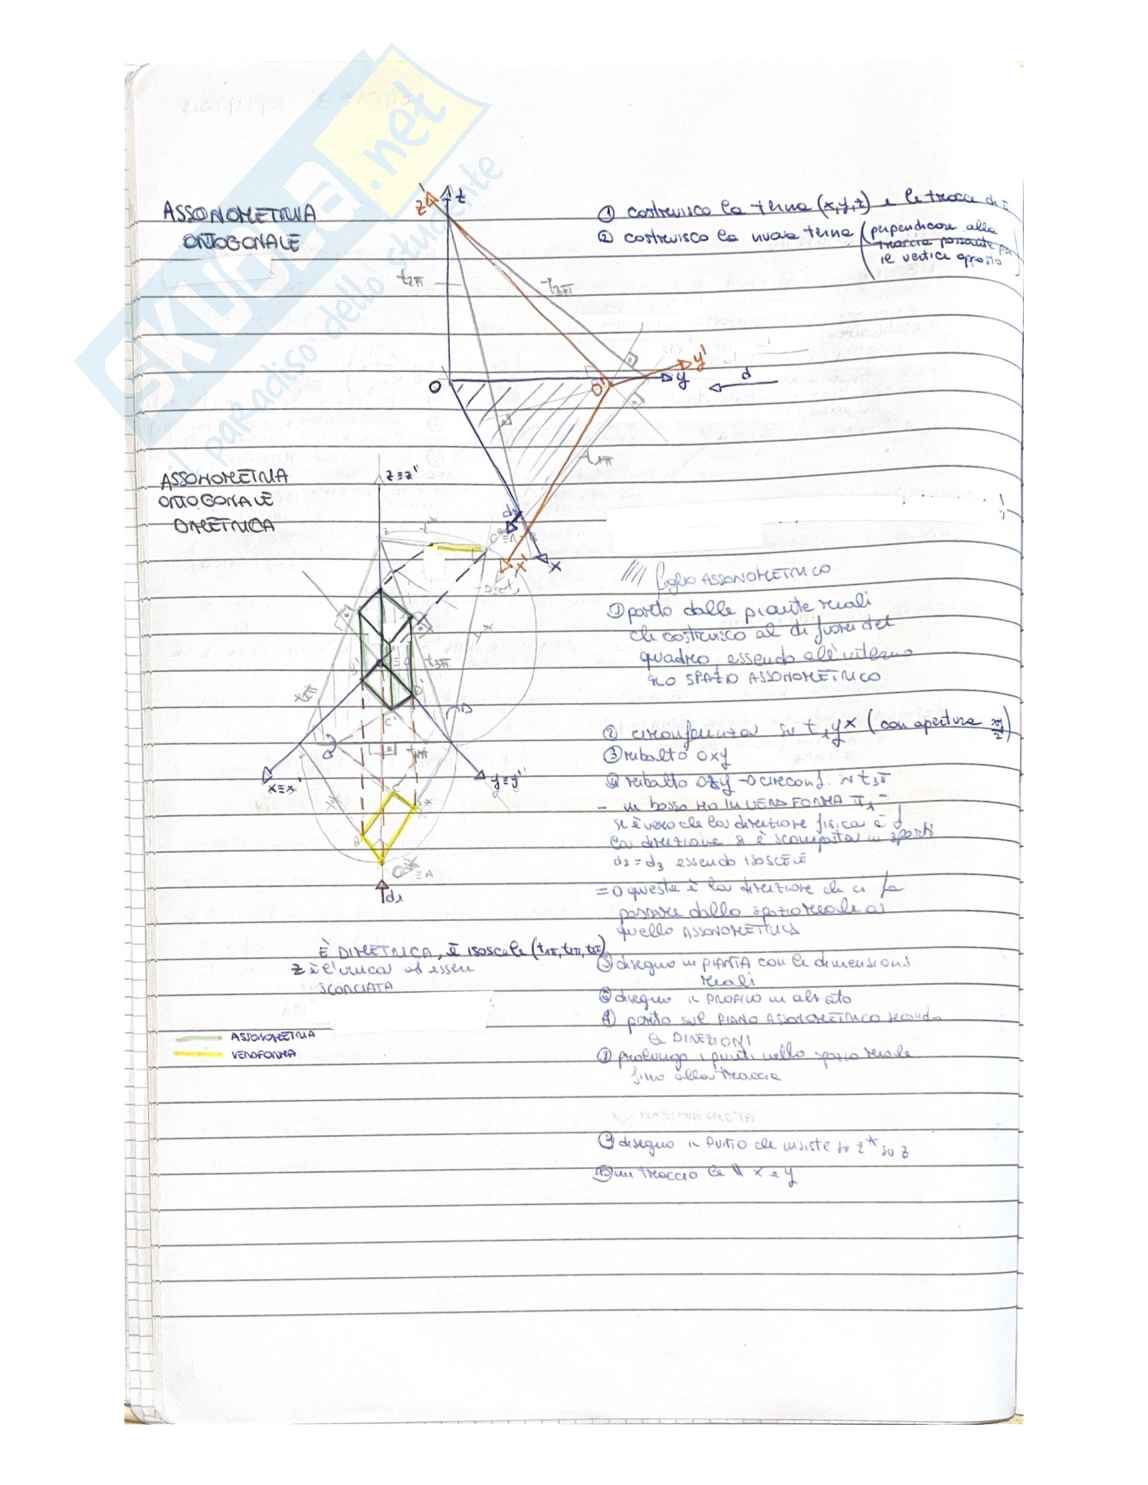 SKUOLA.net
il paradiso dello studente
ASSONOMETRIA
ORTOGONALE
① costruisco la terna (x,y,z) e le tracce di
② costruisco la nuova terna (perpendicolare alla
traccia passante per
il vertice opposto)
z'
z
t2π
t3π
O
O'
y
y'
d
t1π
x'
x
ASSONOMETRIA
ORTOGONALE
DIMETRICA
z≡z'
foglio ASSONOMETRICO
① parto dalle piante reali
che costruisco al di fuori del
quadro, essendo all'interno
lo SPAZIO ASSONOMETRICO
② circonferenza su t1yx (con apertura xy/2)
③ ribalto Oxy
④ ribalto Ozy → circonf. t3π
- in basso ho in VERA FORMA π1
si è vero che la direzione fisica è d
la direzione si è scomposta in
d2 = d3 essendo ISOSCELE
⇒ questa è la direzione che ci fa
passare dallo spazio reale a
quello ASSONOMETRICO
x≡x'
y≡y'
d1
È DIMETRICA, è isoscele (t1π, t2π, t3π)
z è l'unica ad essere
SCORCIATA
⑤ disegno in PIANTA con le dimensioni
reali
⑥ disegno il PROFILO in alzato
porto sul PIANO ASSONOMETRICO secondo
le DIREZIONI
prolungo i punti nello spazio reale
fino alla traccia
ASSONOMETRIA
VERA FORMA
disegno il punto che insiste su z* su z
traccio le ∥ x e y